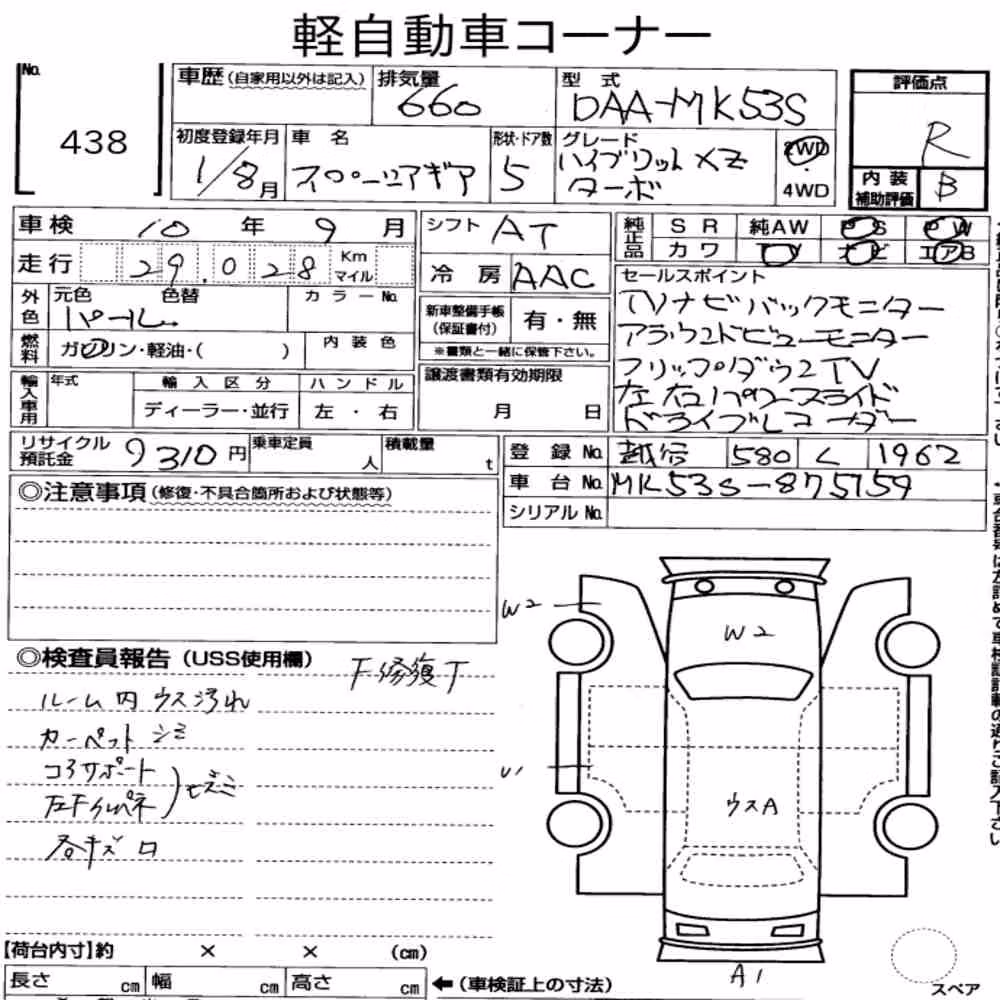 軽自動車コーナー
No.
438
車歴(自家用以外は記入)
排気量
660
型式
DAA-MK53S
評価点
R
内装補助評価
B
初度登録年月
1/8月
車名
スペーシアギア
形状・ドア数
5
グレード
ハイブリット XZ
ターボ
2WD
4WD
車検 10年 9月
シフト AT
純正品
SR 純AW PS PW
カワ TV ナビ エアB
走行 29.028 Km マイル
冷房 AAC
外色
元色 色替 カラーNo.
パール
新車整備手帳
(保証書付)
有・無
※書類と一緒に保管下さい。
燃料
ガソリン・軽油・( )
内装色
セールスポイント
TVナビ バックモニター
アラウンドビューモニター
フリップダウンTV
左右パワースライド
ドライブレコーダー
輸入車用
年式
輸入区分
ハンドル
ディーラー・並行
左・右
譲渡書類有効期限
月 日
リサイクル預託金
9310円
乗車定員
人
積載量
t
登録No. 越谷 580 く 1962
車台No. MK53S-875159
シリアルNo.
◎注意事項(修復・不具合箇所および状態等)
◎検査員報告(USS使用欄)
F修復T
ルーム内 ウス汚れ
カーペット シミ
コアサポート
左Fインパネ
ヒズミ
各キズ ロ
W2
W2
U1
ウスA
A1
スペア
【荷台内寸】約 × × (cm)
長さ cm 幅 cm 高さ cm
←(車検証上の寸法)